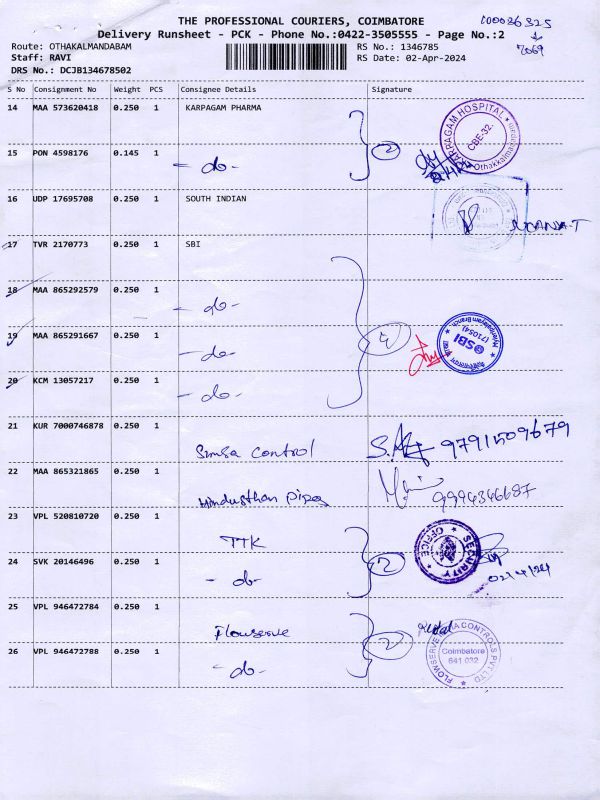 THE PROFESSIONAL COURIERS, COIMBATORE
Delivery Runsheet - PCK - Phone No.:0422-3505555 - Page No.:2
Route: OTHAKALMANDABAM
RS No.: 1346785
Staff: RAVI
RS Date: 02-Apr-2024
DRS No.: DCJB134678502
7069
S No Consignment No Weight PCS Consignee Details Signature
14 MAA 573620418 0.250 1 KARPAGAM PHARMA
KARPAGAM HOSPITAL
CBE-32.
15 PON 4598176 0.145 1 - do - 2
16 UDP 17695708 0.250 1 SOUTH INDIAN
17 TVR 2170773 0.250 1 SBI
18 MAA 865292579 0.250 1 - do -
19 MAA 865291667 0.250 1 - do - 4
SBI
(71054)
20 KCM 13057217 0.250 1 - do -
21 KUR 7000746878 0.250 1 Simsa Control 9791509679
22 MAA 865321865 0.250 1 Hindusthan Pipes 9994346687
23 VPL 520810720 0.250 1 TTK
SECURITY OFFICE
24 SVK 20146496 0.250 1 - do - 2 02/4/24
25 VPL 946472784 0.250 1 Flowserve
FLOWSERVE INDIA CONTROLS PVT LTD
Coimbatore
641 032
2
26 VPL 946472788 0.250 1 - do -